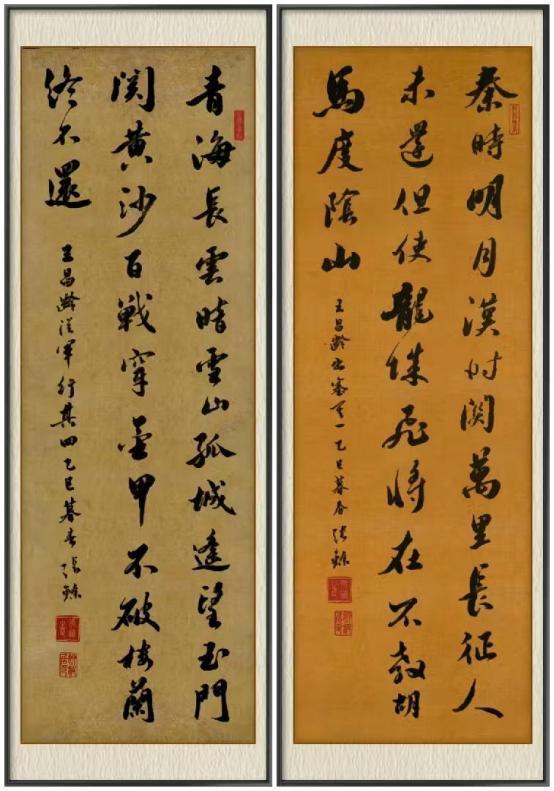 秦時明月漢時関萬里長征人
未還但使龍城飛將在不教胡
馬度陰山
王昌齡出塞其一乙巳暮春張
青海長雲暗雪山孤城遙望玉門
関黄沙百戰穿金甲不破樓蘭
終不還
王昌齡從軍行其四乙巳暮春張